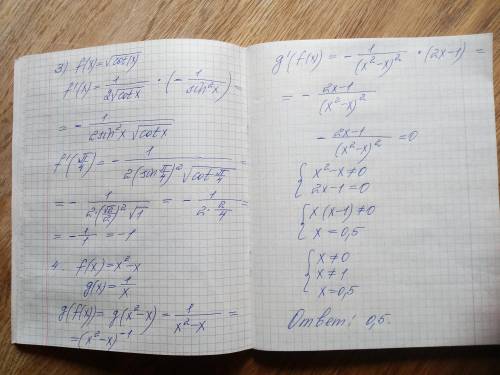 3) f(x)=√cot(x)
f'(x)= 1/(2√cotx) · (- 1/sin²x) =
= - 1/(2sin²x √cotx)
f'(π/4)= - 1/(2(sin π/4)² √cot π/4) =
= - 1/(2·(√2/2)² √1) = - 1/(2·2/4) =
= - 1/1 = -1
4. f(x)=x²-x
g(x)= 1/x
g(f(x))= g(x²-x)= 1/(x²-x) =
=(x²-x)⁻¹
g'(f(x)) = - 1/(x²-x)² · (2x-1) =
= - (2x-1)/(x²-x)²
- (2x-1)/(x²-x)² =0
{ x²-x≠0
2x-1=0
{ x(x-1)≠0
x=0,5
{ x≠0
x≠1
x=0,5
Ответ: 0,5.